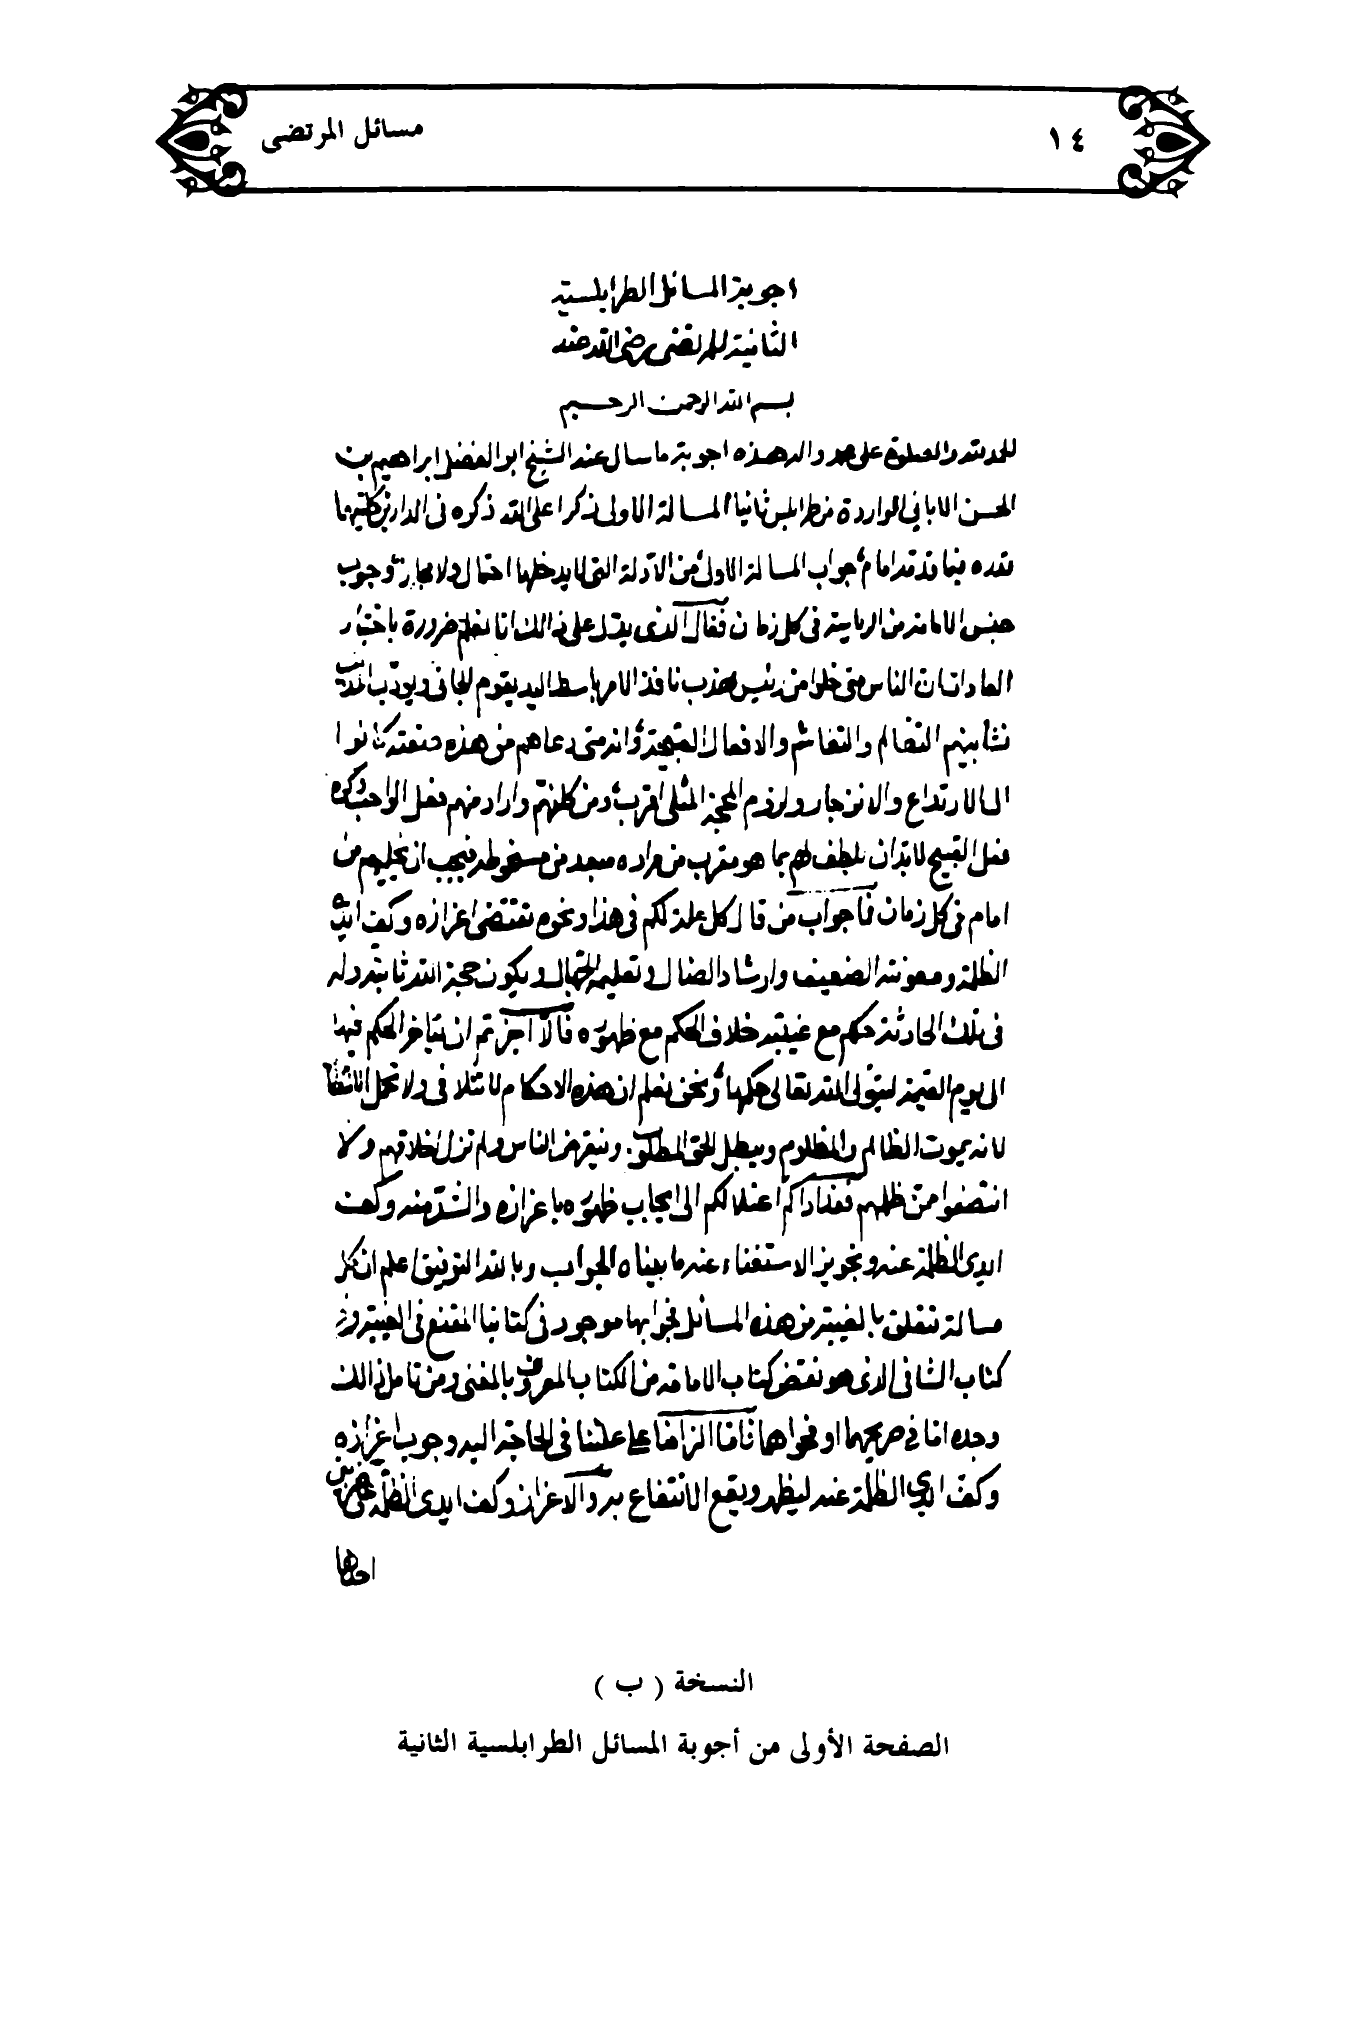 ١٤ مسائل المرتضى
اجوبة المسائل الطرابلسية
الثانية للمرتضى رضى الله عنه
بسم الله الرحمن الرحيم
الحمد لله والصلوة على محمد واله هذه اجوبة ما سال عنه الشيخ ابو الفضل ابراهيم بن
الحسن الابانى الواردة من طرابلس ثانيا المسالة الاولى ذكر اعلى الله ذكره فى الدارين كلمته ما
قدره فيما قدمه امام جواب المسالة الاولى من الادلة التى لا يدخلها احتمال ولا مجاز وجوب
جنس الامامة من الرياسة فى كل زمان فقال الذى يدل على ذالك انا نعلم ضرورة باختبار
العادات ان الناس متى خلوا من رئيس مهذب نافذ الامر باسط اليد يقوم الجانى ويودب المذنب
نشأ بينهم التظالم والتغاشم والافعال القبيحة وانه متى دعاهم من هذه صفته كانوا
الى الارتداع والانزجار ولزوم المحجة المثلى اقرب ومن كلفهم واراد منهم فعل الواجب وكره
فعل القبيح لا بد ان يلطف لهم بما هو مقرب من مراده مبعد من مسخوطه فيجب ان لا يخليهم من
امام فى كل زمان فما جواب من قال كل علة لكم فى هذا ونحوه تقتضى اعزازه وكف ايدى
الظلمة ومعونته الضعيف وارشاد الضال وتعليم الجهال ويكون حجة الله ثابتة وله
فى تلك الحادثة حكم مع غيبته خلاف الحكم مع ظهوره قالا اجزتم ان يتاخر الحكم فيها
الى يوم القيمة ليتولى الله تعالى حكمها ونحن نعلم ان هذه الاحكام لا تتلافى ولا تحمل الانتقال
لانه يموت الظالم والمظلوم ويبطل الحق المطلوب وينقرض الناس ولم تزل اخلاقهم ولا
انتصفوا ممن ظلمهم فقد اداكم اعتلالكم الى ايجاب ظهوره باعزازه والشد منه وكف
ايدى الظلمة عنه وتجويز الاستغناء عنه ما بيناه الجواب وبالله التوفيق اعلم ان كل
مسالة تتعلق بالغيبة من هذه المسائل فجوابها موجود فى كتابنا المقنع فى الغيبة وفى
كتاب الشافى الذى هو نقض كتاب الامامة من الكتاب المعروف بالمغنى ومن تامل ذالك
وجده اما فى صريحهما او فحواهما فاما الزامنا على علتنا فى الحاجة اليه وجوب اعزازه
وكف ايدى الظلمة عنه ليظهر ويقع الانتفاع به والاعزاز وكف ايدى الظلمة على ضربين
احدهما
النسخة ( ب )
الصفحة الأولى من أجوبة المسائل الطرابلسية الثانية